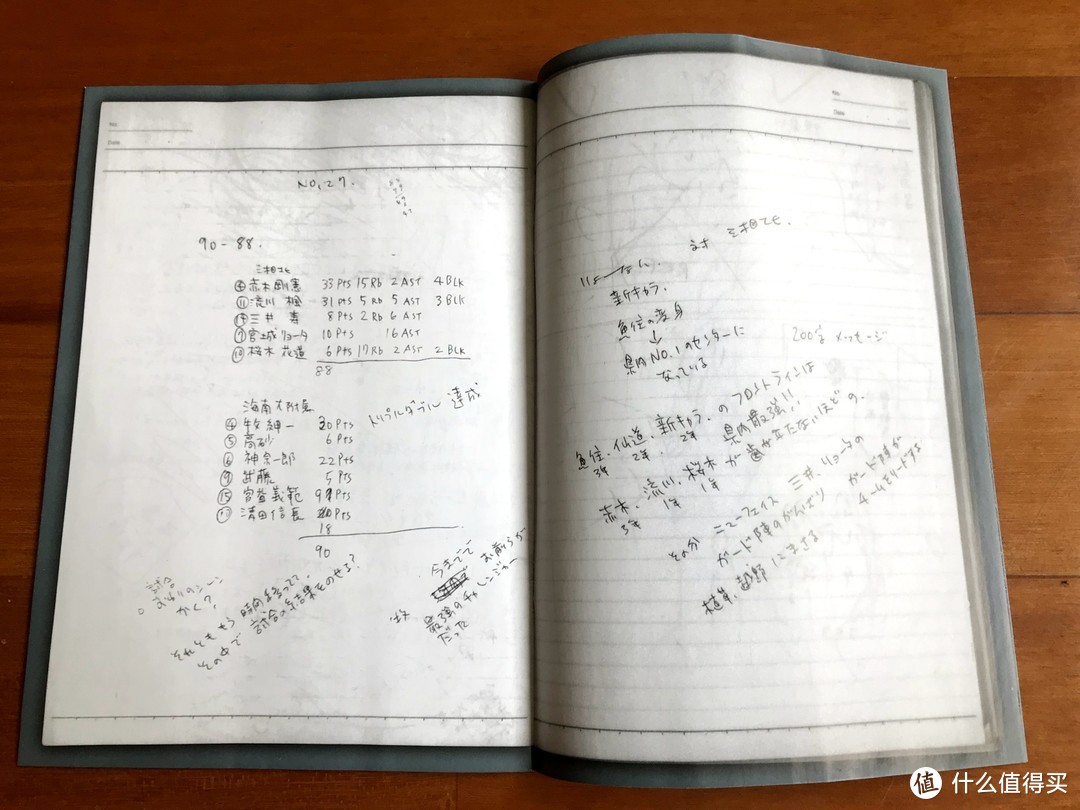 No.
Date
NO.27.
90-88.
湘北
④赤木剛憲 33Pts 15Rb 2AST 4BLK
⑪流川 楓 31Pts 5Rb 5AST 3BLK
⑭三井 寿 8Pts 2Rb 6AST
⑦宮城リョータ 10Pts 16AST
⑩桜木花道 6Pts 17Rb 2AST 2BLK
88
海南大附属
トリプルダブル 達成
④牧 紳一 30Pts
⑤高砂 6Pts
⑥神 宗一郎 22Pts
⑨武藤 5Pts
⑮宮益義範 9Pts
⑩清田信長 Pts
18
90
試合
おわりのシーン
かく?
それとももう時間経ってて、
その中で試合の結果をのせる?
今までで
お前らが
最強のチャ
レンジャー
だった
牧
No.
Date
対 湘北.
新キャラ.
魚住の変身
↓
県内NO.1のセンターに
なっている
200字 メッセージ
魚住、仙道、新キャラ.のフロントラインは
3年 2年 2年 県内最強!!
赤木、流川、桜木が歯が立たないほどの.
3年 1年 1年
その分 ニューフェイス 三井、リョータの
ガード陣のがんばり ガード陣が
植草、越野にまさる チームをリードする
值 什么值得买